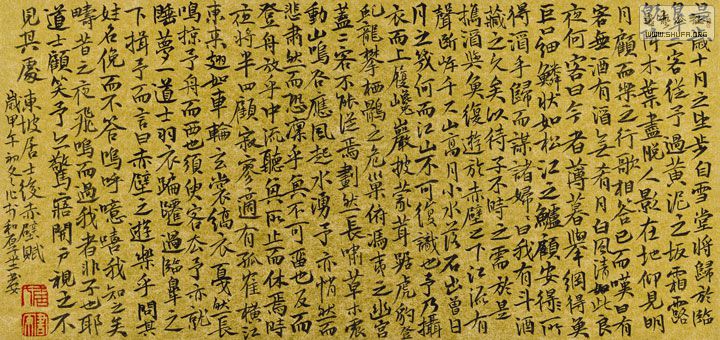 是歲十月之望步自雪堂將歸於臨
二客從予過黃泥之坂霜露
降木葉盡脫人影在地仰見明
月顧而樂之行歌相答已而嘆曰有
客無酒有酒無肴月白風清如此良
夜何客曰今者薄暮舉網得魚
巨口細鱗狀如松江之鱸顧安得所
得酒乎歸而謀諸婦婦曰我有斗酒
藏之久矣以待子不時之需於是
攜酒與魚復遊於赤壁之下江流有
聲斷岸千尺山高月小水落石出曾日
月之幾何而江山不可復識也予乃攝
衣而上履巉巖披蒙茸踞虎豹登
虬龍攀栖鶻之危巢俯馮夷之幽宮
蓋二客不能從焉劃然長嘯草木震
動山鳴谷應風起水湧予亦悄然而
悲肅然而恐凜乎其不可留也反而
登舟放乎中流聽其所止而休焉時
夜將半四顧寂寥適有孤鶴橫江
東來翅如車輪玄裳縞衣戛然長
鳴掠予舟而西也須臾客去予亦就
睡夢一道士羽衣蹁躚過臨皋之
下揖予而言曰赤壁之遊樂乎問其
姓名俛而不答嗚呼噫嘻我知之矣
疇昔之夜飛鳴而過我者非子也耶
道士顧笑予亦驚寤開戶視之不
見其處 東坡居士後赤壁賦
歲甲午初冬
WWW.SHUFA.ORG